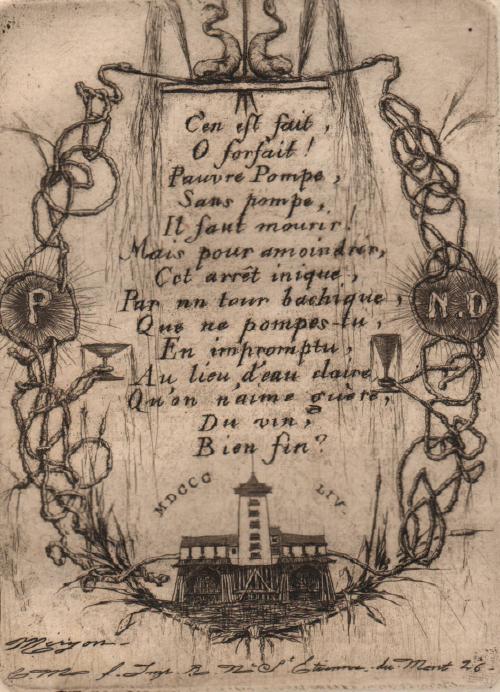 C'en est fait,
O forfait!
Pauvre Pompe,
Sans pompe,
Il faut mourir!
Mais pour amoindrir,
Cet arrêt inique,
Par un tour bachique,
Que ne pompes-tu,
En impromptu,
Au lieu d'eau claire,
Qu'on n'aime guère,
Du vin,
Bien fin?
P
N.D
MDCCC LIV.
Méryon
C. M f. Imp. R. Nve St Etienne-du-Mont 26.